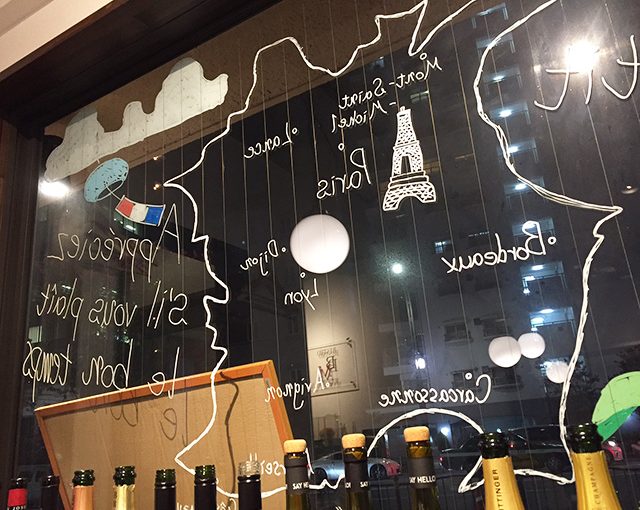 Appréciez
s'il vous plaît
le bon temps
Mont-Saint
-Michel
Lance
Paris
Dijon
Lyon
Bordeaux
Avignon
Carcassonne
SAY HELLO
CHAMPAGNE